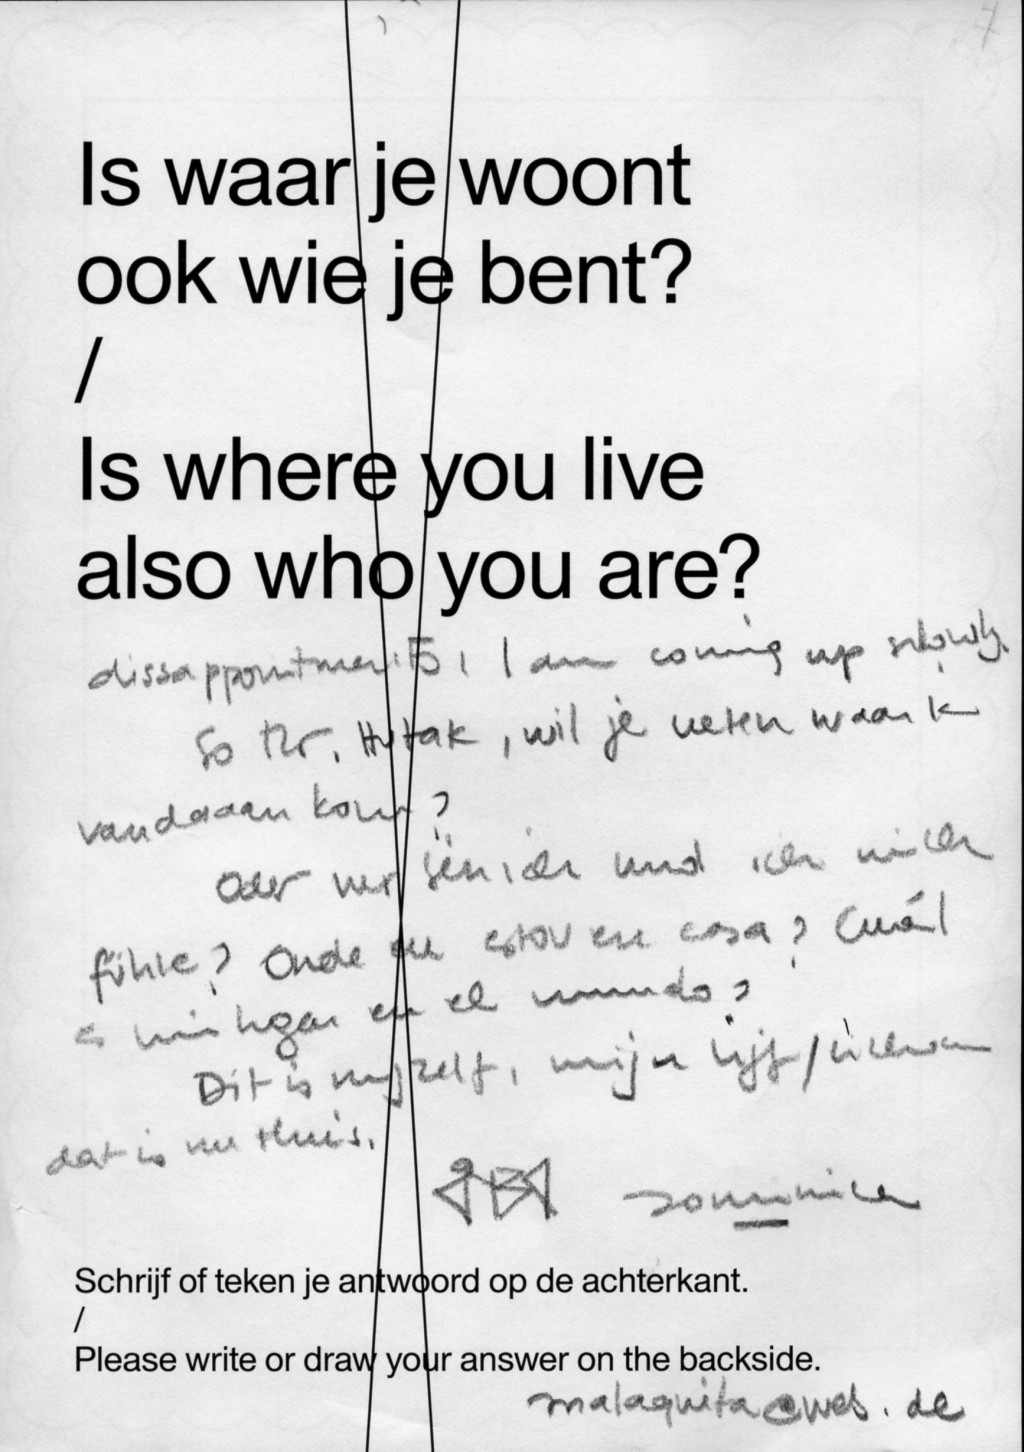 Is waar je woont
ook wie je bent?
/
Is where you live
also who you are?
dissappointments, I am coming up slowly.
So Mr. , wil je weten waar ik
vandaaan kom?
Oder wer bin ich und ich mich
fühle? Onde eu estou en casa? Cuál
es mi lugar en el mundo?
Dit is myzelf, mijn lijf/
dat is nu thuis.
Schrijf of teken je antwoord op de achterkant.
/
Please write or draw your answer on the backside.
malaquita@web.de